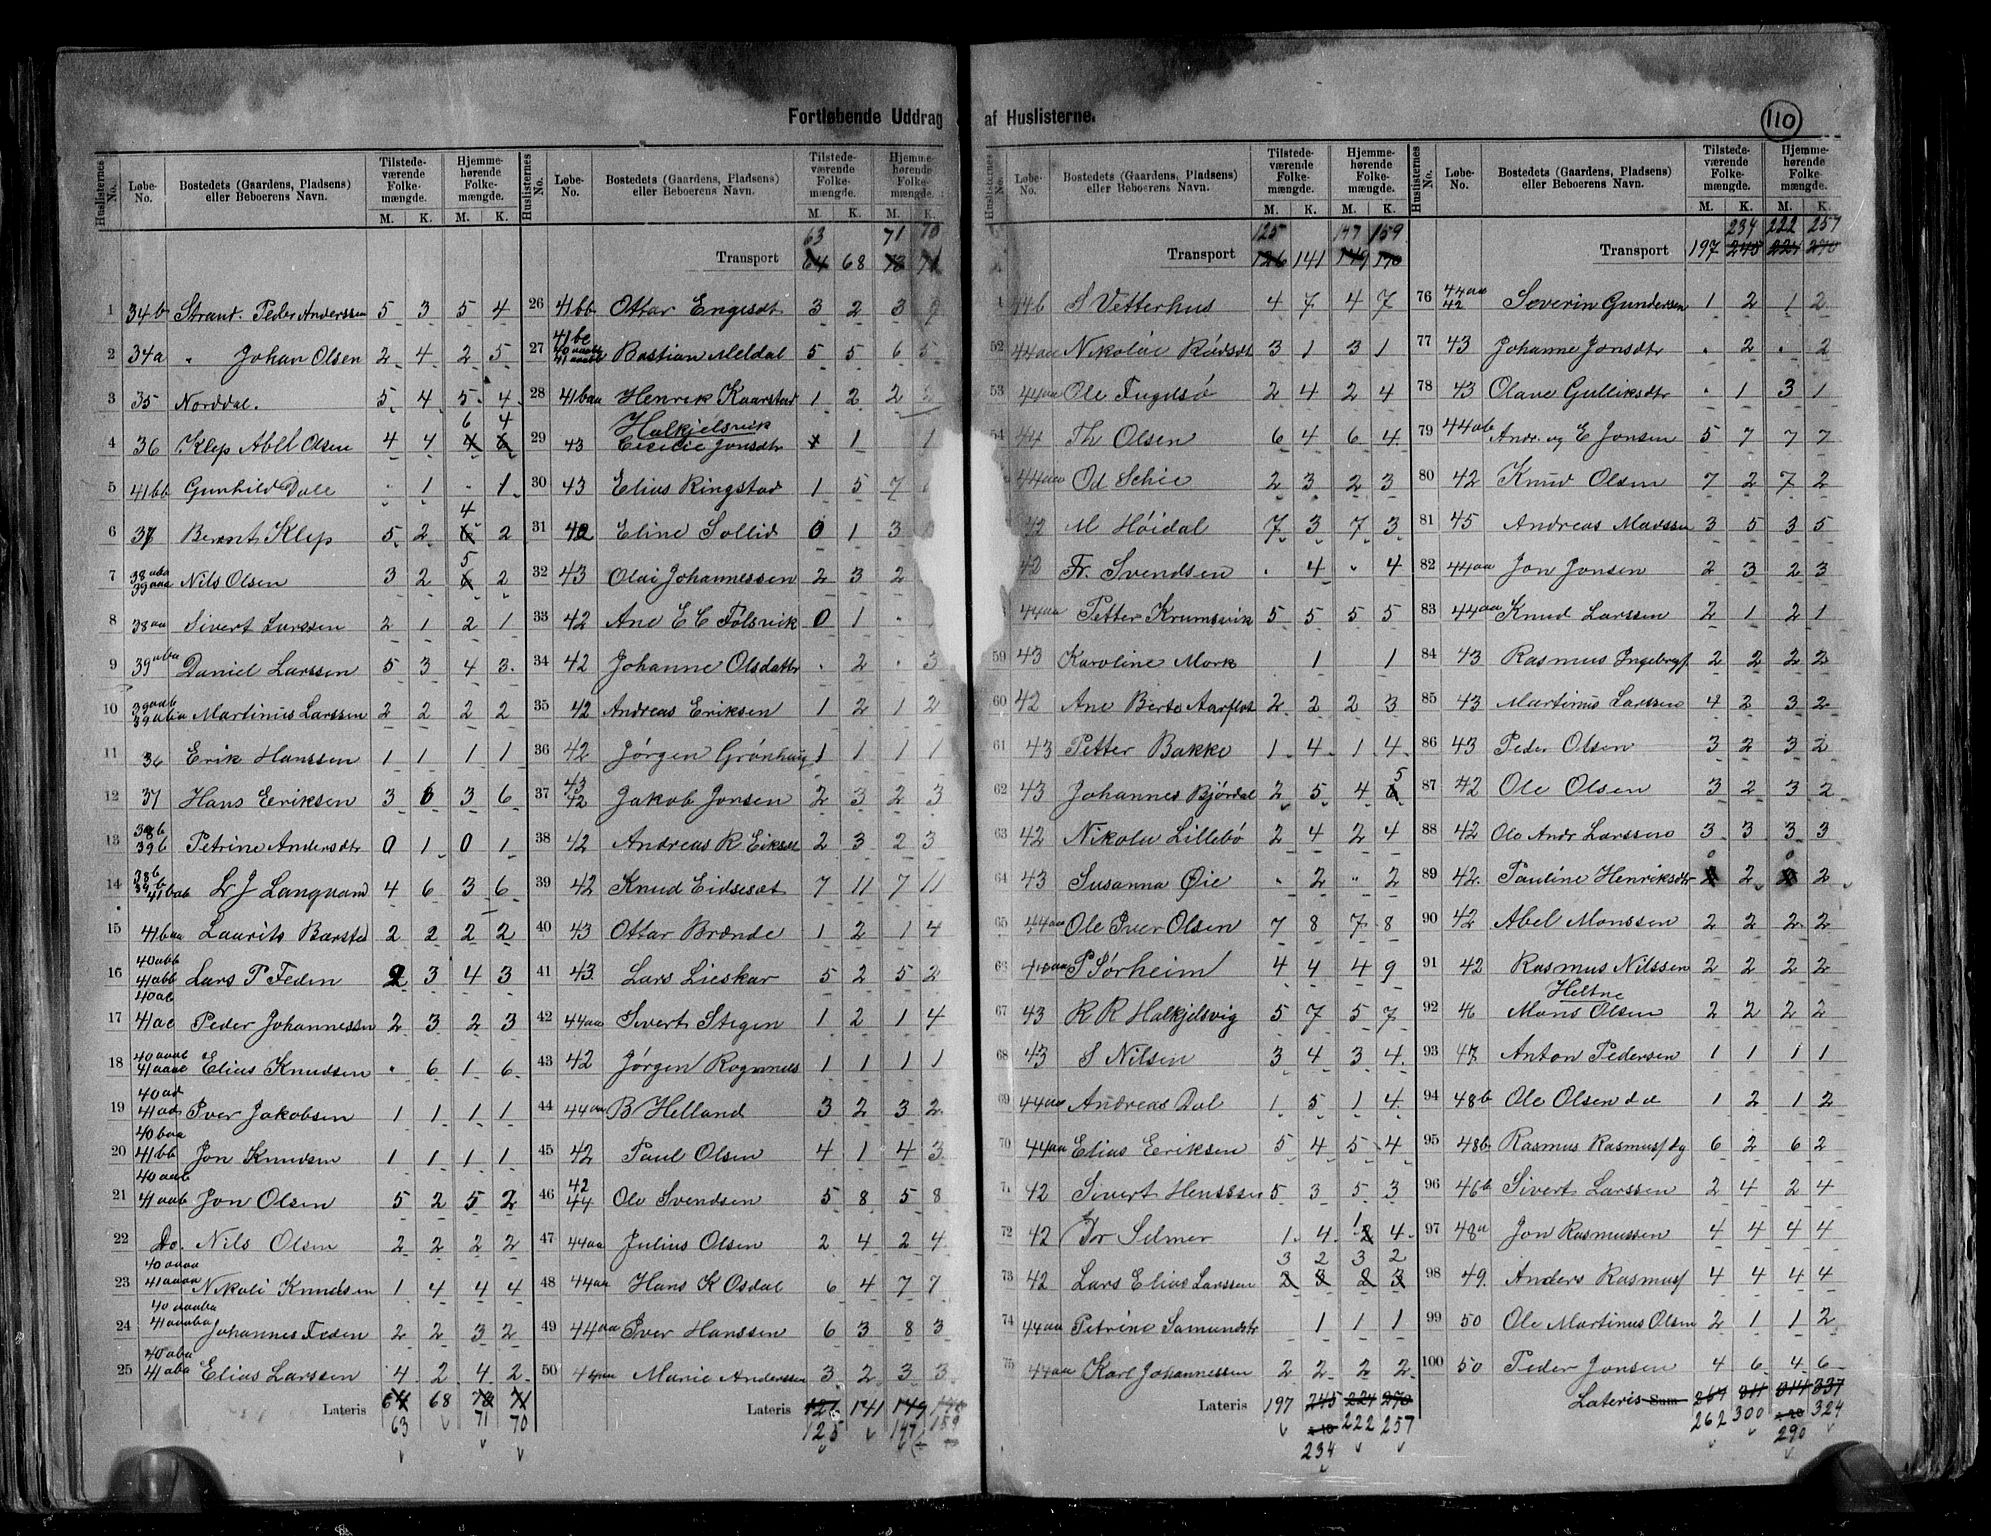 Fortløbende Uddrag af Huslisterne.
110
Huslisternes No. Løbe-No. Bostedets (Gaardens, Pladsens) eller Beboerens Navn. Tilstedeværende Folkemængde. M. K. Hjemmehørende Folkemængde. M. K.
1 34b Strand. Peder Anderssen 5 3 5 4
2 34a " Johan Olsen 2 4 2 5
3 35 Norddal. 5 4 5 4
4 36 Klep Abel Olsen 4 4 6 4
5 41bb Gunhild Dale . 1 . 1
6 37 Bernt Klep 5 2 4 2
7 38aba 39aaa Nils Olsen 3 2 5 2
8 38aa Sivert Larssen 2 1 2 1
9 39aba Daniel Larssen 5 3 4 3
10 39aab 39aba Martinus Larssen 2 2 2 2
11 36 Erik Hanssen 1 1 1 1
12 37 Hans Eriksen 3 6 3 6
13 38b 39b Petrine Andersdtr 0 1 0 1
14 38b 39b 41bab L J Langvand 4 6 3 6
15 41baa Laurits Barsted 2 2 2 2
16 40abb 41abb Lars P Feden 2 3 4 3
17 40ac 41ac Peder Johannessen 2 3 2 3
18 40aaab 41aaac Elias Knudsen . 6 1 6
19 40ad 41ad Iver Jakobsen 1 1 1 1
20 40baa 41bb Jon Knudsen 1 1 1 1
21 40aab 41aab Jon Olsen 5 2 5 2
22 Do. Nils Olsen 2 2 2 2
23 40aaaa 41aaaa Nikoli Knudsen 1 4 4 4
24 40aaaba 41aaaba Johannes Feden 2 2 3 2
25 40aba 41aba Elias Larssen 4 2 4 2
Lateris 64 68 78 71
63 71 70
Huslisternes No. Løbe-No. Bostedets (Gaardens, Pladsens) eller Beboerens Navn. Tilstedeværende Folkemængde. M. K. Hjemmehørende Folkemængde. M. K.
63 71 70
Transport 64 68 78 71
26 41bb Ottar Engesdt 3 2 3
27 Bastian Meldal 5 5 6 5
28 41baa Henrik Kaarstad 1 2 2
Halkjelsvik
29 43 Cecilie Jonsdtr 1 1
30 43 Elias Ringstad 1 5 7
31 42 Eline Sollid 0 1 3
32 43 Olai Johannessen 2 3 2
33 42 Ane E C Folsvik 0 1 .
34 42 Johanne Olsdattr . 2 . 3
35 42 Andreas Eriksen 1 2 1 2
36 42 Jørgen Grønhaug 1 1 1 1
37 43 42 Jakob Jonsen 2 3 2 3
38 42 Andreas R Eikset 2 3 2 3
39 42 Knud Eidseset 7 11 7 11
40 43 Ottar Brænde 1 2 1 4
41 43 Lars Lieskar 5 2 5 2
42 44aa Sivert Stegen 1 2 1 4
43 42 Jørgen Rognnes 1 1 1 1
44 44aa B Helland 3 2 3 2
45 42 Paul Olsen 4 1 4 3
46 42 44 Ole Svendsen 5 8 5 8
47 44aa Julius Olsen 2 4 2 4
48 44aa Hans K Osdal 6 4 7 7
49 44aa Iver Hanssen 6 3 8 3
50 44aa Marie Anderssen 3 2 3 3
Lateris 126 141 149
125 147 159
Huslisternes No. Løbe-No. Bostedets (Gaardens, Pladsens) eller Beboerens Navn. Tilstedeværende Folkemængde. M. K. Hjemmehørende Folkemængde. M. K.
125 147 159
Transport 126 141 149 170
44b S Vetterhus 4 7 4 7
52 44aa Nikolai Rødsdt 3 1 3 1
53 44aa Ole Fugelsø 2 4 2 4
54 44 Th Olsen 6 4 6 4
44aa Od Schie 2 3 2 3
42 M Høidal 7 3 7 3
42 Fr. Svendsen . 4 . 4
44aa Petter Krumsvik 5 5 5 5
59 43 Karoline Mork 1 1
60 42 Ane Berte Aarflot 2 2 2 3
61 43 Petter Bakke 1 4 1 4
62 43 Johannes Bjørdal 2 5 4 5
63 42 Nikolai Lillebø 2 4 2 4
64 43 Susanna Øie . 2 . 2
65 44aa Ole Iver Olsen 7 8 7 8
66 44aa P Sørheim 4 4 4 9
67 43 R R Halkjelsvig 5 7 5 7
68 43 S Nilsen 3 4 3 4
69 44aa Andreas Dal 1 5 1 4
70 44aa Elias Eriksen 5 4 5 4
71 42 Sivert Henssen 5 3 5 3
72 42 Ivr Selmer 1 4 1 4
3 2 3 2
73 42 Lars Elias Larssen 2 3 2 3
74 44aa Petrine Samundsdtr 1 1 1
75 44aa Karl Johannessen 2 2 2 2
Lateris 197 245 224 270
222 257
234
Huslisternes No. Løbe-No. Bostedets (Gaardens, Pladsens) eller Beboerens Navn. Tilstedeværende Folkemængde. M. K. Hjemmehørende Folkemængde. M. K.
234 222 257
Transport 197 245 224 270
76 44aa 42 Severin Gundersen 1 2 1 2
77 43 Johanne Jonsdtr . 2 . 2
78 43 Olave Gulliksdtr . 1 3 1
79 44ab Andr. og E Jonsen 5 7 7 7
80 42 Knud Olsen 7 2 7 2
81 45 Andreas Madssen 3 5 3 5
82 44aa Jon Jonsen 2 3 2 3
83 44aa Knud Larssen 2 1 2 1
84 43 Rasmus Ingebrgs 2 2 2 2
85 43 Martinus Larssen 4 2 3 2
86 43 Peder Olsen 3 2 3 2
87 42 Ole Olsen 3 2 3 2
88 42 Ole Andr Larssen 3 3 3 3
89 42. Pauline Henriksdtr 0 2 0 2
90 42 Abel Monssen 2 2 2 2
91 42 Rasmus Nilssen 2 2 2 2
Heltne
92 46 Mons Olsen 2 2 2 2
93 47 Anton Pedersen 1 1 1 1
94 48b Ole Olsen d e 1 2 1 2
95 48b Rasmus Rasmuss dy 6 2 6 2
96 46b Sivert Larssen 2 4 2 4
97 48a Jon Rasmussen 4 4 4 4
98 49. Anders Rasmuss 4 4 4 4
99 50 Ole Martinus Olsen 2 1 1 2
100 50 Peder Jonsen 4 6 4 6
Lateris Sum 267 311 314 337
262 300 324
290